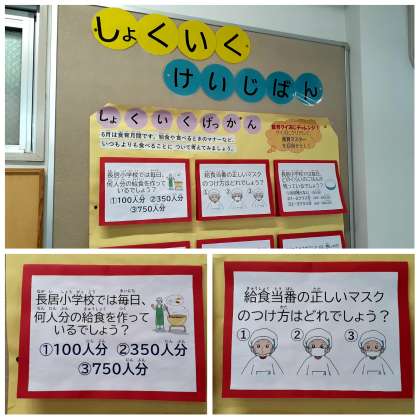 しょくいく
けいじばん
しょくいくげっかん
6月は食育月間です。給食や食べるときのマナーなど、
いつもよりも食べることについて考えてみましょう。
食育クイズにチャレンジ!
長居小学校では毎日、
何人分の給食を作って
いるでしょう?
①100人分 ②350人分
③750人分
給食当番の正しいマスク
のつけ方はどれでしょう?
① ② ③
長居小学校では毎日、
ながい しょうがっこう まいにち
何人分の給食を作って
なんにんぶん きゅうしょく つく
いるでしょう?
①100人分 ②350人分
③750人分
きゅうしょくとうばん ただ
給食当番の正しいマスク
のつけ方はどれでしょう?
① ② ③